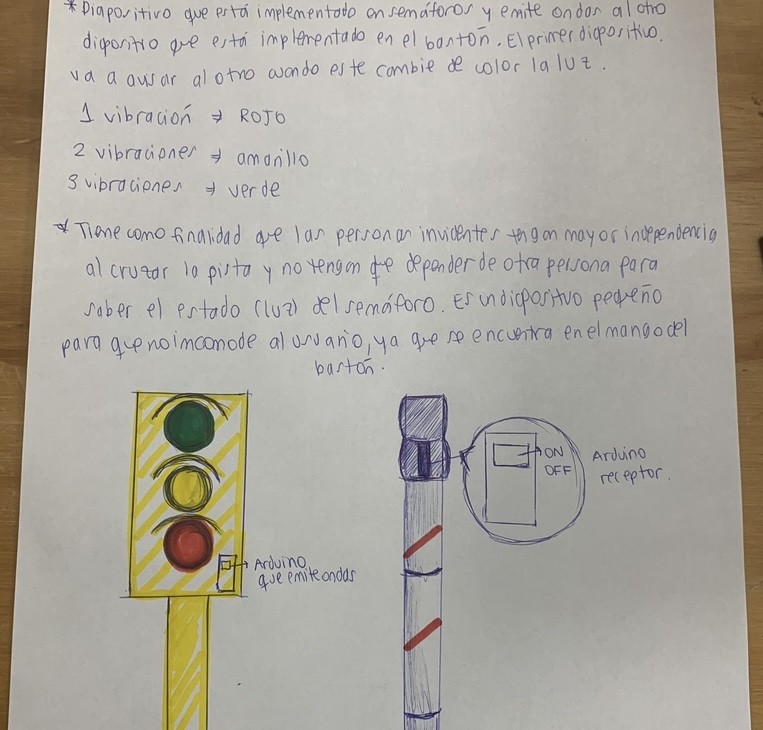 * Diapositivo que está implementado en semáforos y emite ondas al otro
dispositivo que está implementado en el bastón. El primer dispositivo.
va a avisar al otro cuando este cambie de color la luz.
1 vibración → ROJO
2 vibraciones → amarillo
3 vibraciones → verde
* Tiene como finalidad que las personas invidentes tengan mayor independencia
al cruzar la pista y no tengan que depender de otra persona para
saber el estado (luz) del semáforo. Es un dispositivo pequeño
para que no incomode al usuario, ya que se encuentra en el mango del
bastón.
ON
OFF
Arduino
receptor.
Arduino
que emite ondas